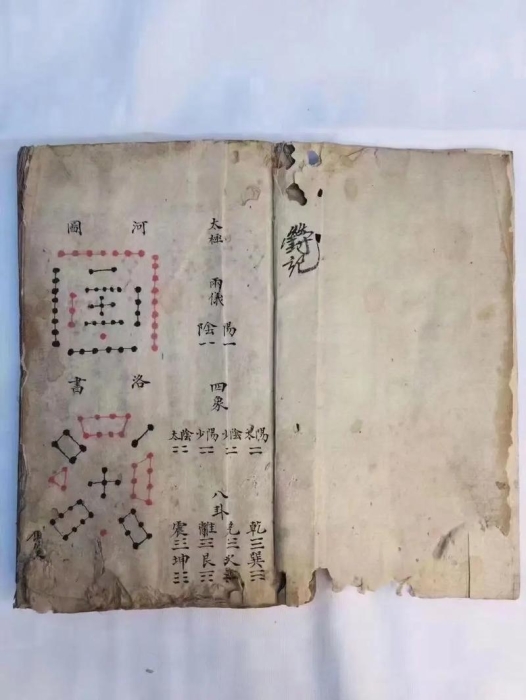 記
太極
兩儀
陽 陰
四象
太陽 少陰 少陽 太陰
八卦
乾 兌 離 震
巽 坎 艮 坤
河圖
洛書